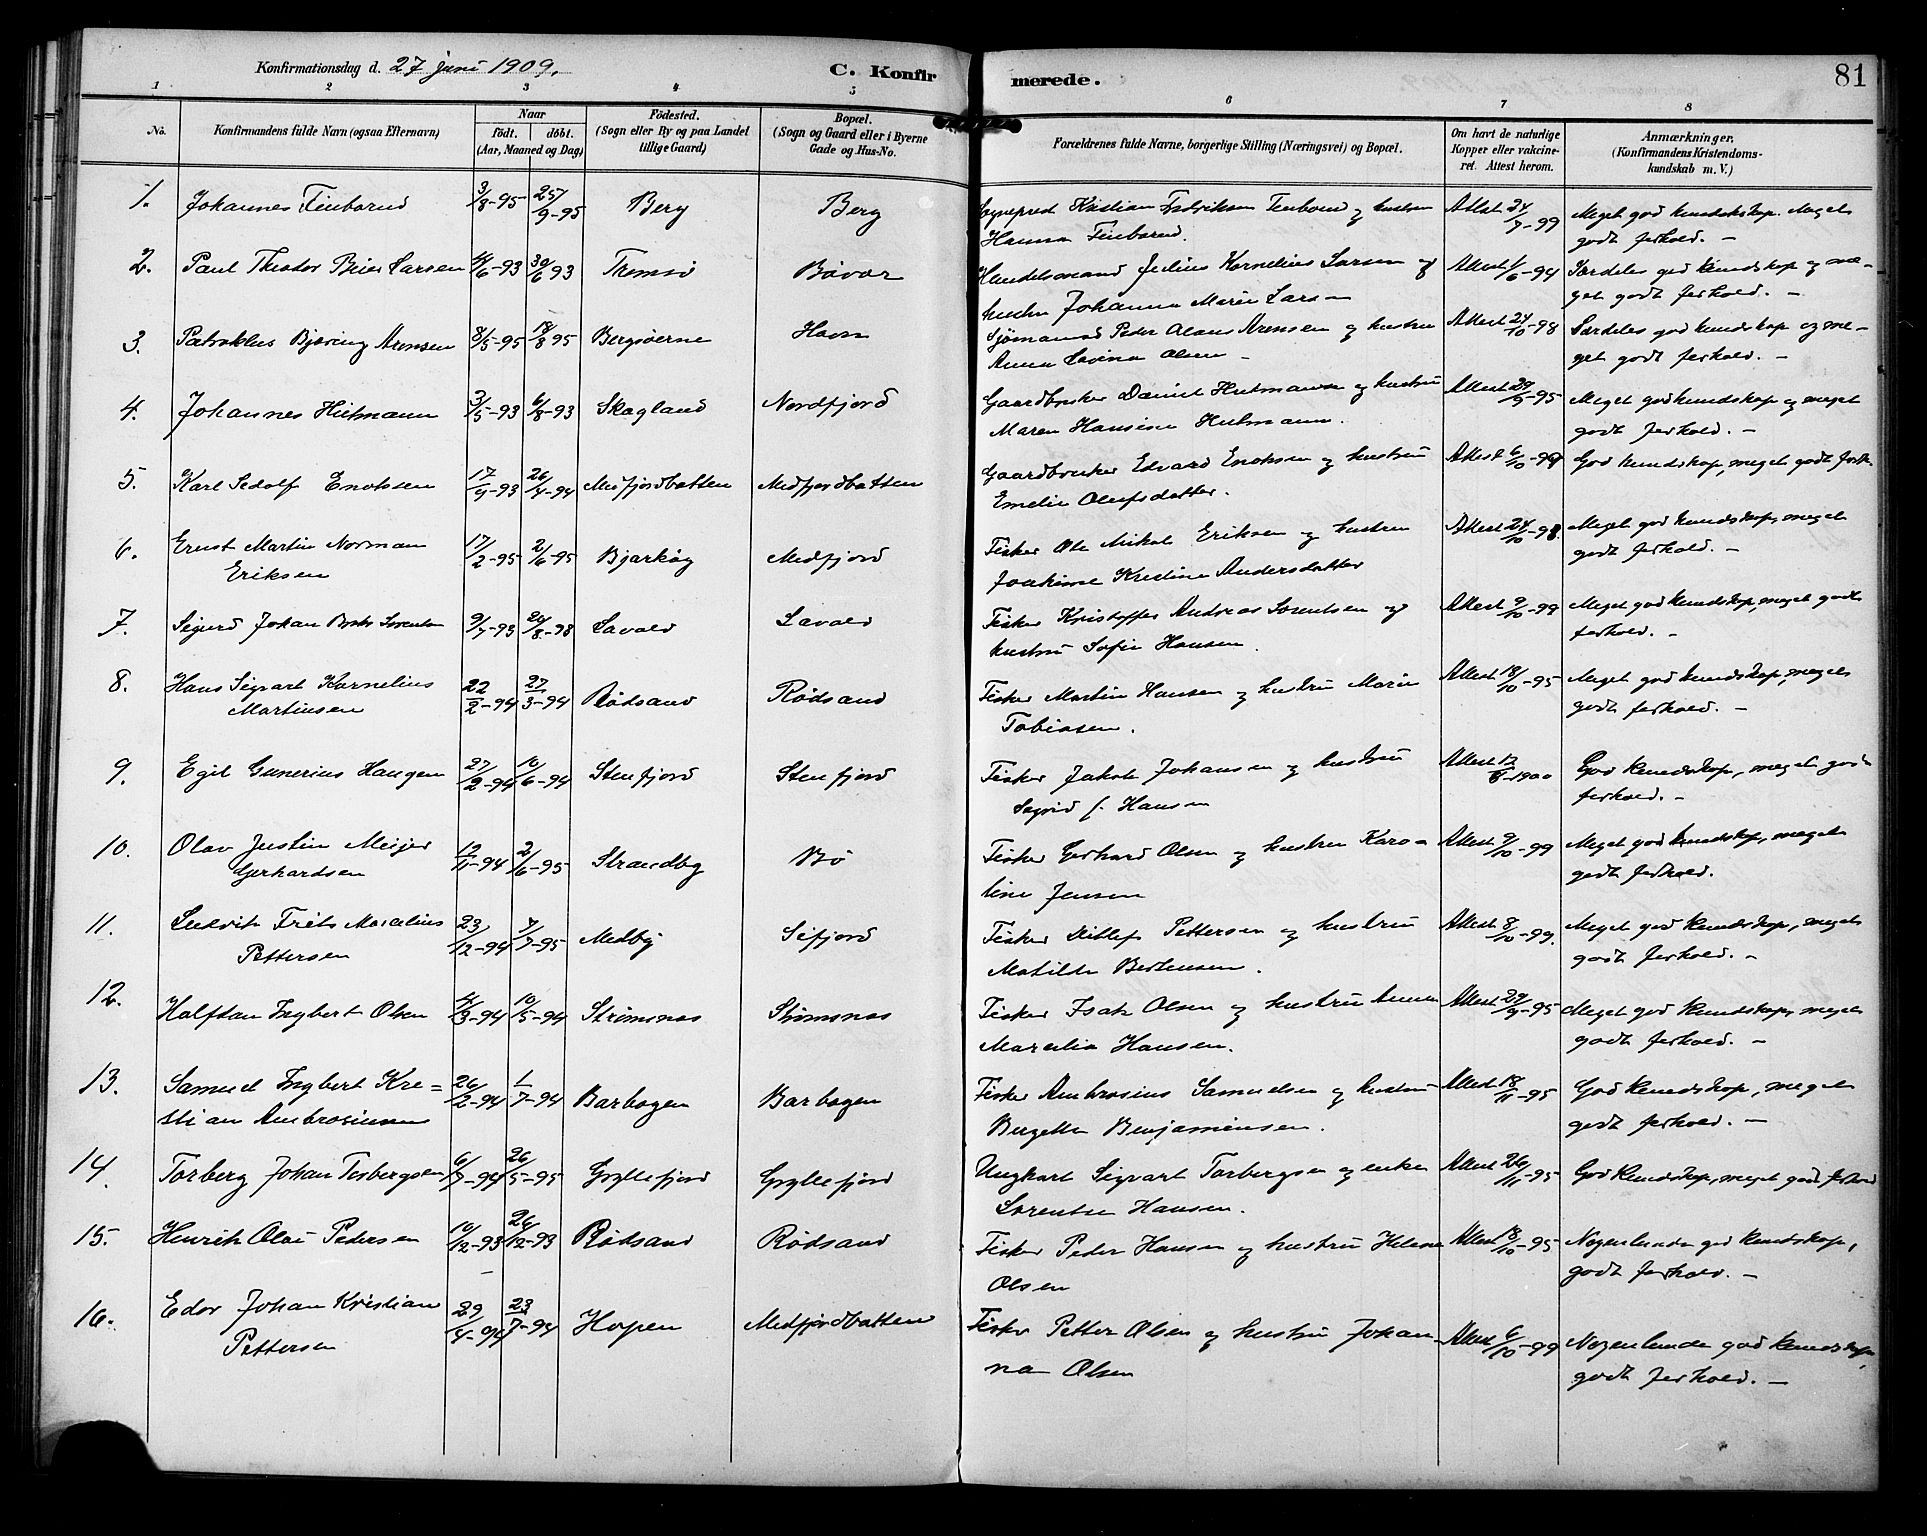 81
Konfirmationsdag d. 27 juni 1909.
C. Konfirmerede.
1 2 3 4 5 6 7 8
No.
Konfirmandens fulde Navn (ogsaa Efternavn)
Naar
født. døbt.
(Aar, Maaned og Dag)
Fødested.
(Sogn eller By og paa Landet
tillige Gaard)
Bopæl.
(Sogn og Gaard eller i Byerne
Gade og Hus-No.
Forældrenes fulde Navne, borgerlige Stilling (Næringsvei) og Bopæl.
Om havt de naturlige
Kopper eller vakcine-
ret. Attest herom.
Anmærkninger,
(Konfirmandens Kristendoms-
kundskab m. V.)
1. Johannes 3/8-95 25/9-95 Berg Berg Sogneprest Kristian og hustru Attest 24/7-99 Meget god kundskap. Meget
Hanna godt forhold. -
2. Paul Theodor Larsen 4/6-93 30/6 93 Tromsø Bøvær Handelsmand Julius Kornelius Larsen og Attest 1/6-94 Særdeles god kundskap og me-
hustru Johanna Marie Larsen get godt forhold. -
3. Patroklus Bjæring Arensen 8/5-95 18/8 95 Bergsøerne Havn Sjømand Peder Olaus Arensen og hustru Attest 24/10-98 Særdeles god kundskap og me-
Anna Lovina Olsen - get godt forhold. -
4. Johannes Hutmann 3/5-93 6/8-93 Skagland Nordfjord Gaardbruker Daniel Hutmann og hustru Attest 27/9-95 Meget god kundskap og meget
Maren Hansine Hutmann. godt forhold. -
5. Karl Sedolf Enoksen 17/9-93 26/4-94 Medfjordbotten Medfjordbotten Gaardbruker Edvard Enoksen og hustru Attest 6/10-99 God kundskap, meget godt forh.
Emelie Olufsdatter.
6. Ernst Martin Norman 17/2-95 2/6-95 Bjarkøy Medfjord Fisker Ole Mikal Eriksen og hustru Attest 24/10-98. Meget god kundskap, meget
Eriksen Joakime Kristine Andersdatter godt forhold. -
7. Sigurd Johan Sørentsen 9/7-93 20/8-93 Lavold Lavold Fisker Kristoffer Andreas Sørentsen og Attest 9/10-99 Meget god kundskap, meget godt
hustru Sofie Hansen. forhold. -
8. Hans Sigvart Kornelius 22/2-94 27/3-94 Rødsand Rødsand Fisker Martin Hansen og hustru Marie Attest 18/10-95 Meget god kundskap, meget
Martinsen Tobiasen. godt forhold. -
9. Egil Gunerius Haugen 27/2-94 10/6-94 Stenfjord Stenfjord Fisker Jakob Johansen og hustru Attest 12/6-1900 God kundskap, meget godt
Sigrid f. Hansen forhold. -
10. Olav Justin Meijer 12/11-94 2/6-95 Strandby Bø Fisker Gerhard Olsen og hustru Karo= Attest 9/10-99 Meget god kundskap, meget
Gerhardsen line Jensen godt forhold.
11. Ludvik Frits Marelius 23/12-94 7/7-95 Medby Sifjord Fisker Ditlef Pettersen og hustru Attest 8/10-99. Meget god kundskap, meget
Pettersen Matilde Berthensen. godt forhold. -
12. Halfdan Ingbert Olsen 4/3-94 10/5-94 Strømsnes Strømsnes Fisker Isak Olsen og hustru Anna Attest 27/9-95 Meget god kundskap, meget
Marelia Hansen. godt forhold. -
13. Samuel Ingbert Kri= 26/2-94 1/7-94 Barbogen Barbogen Fisker Ambrosius Samuelsen og hustru Attest 18/11-95 God kundskap, meget
stian Ambrosiussen Bergette Benjaminsen. godt forhold. -
14. Torberg Johan Torbergsen 6/7-94 26/5-95 Gryllefjord Gryllefjord Ungkarl Sigvart Torbergsen og enke Attest 26/11-95 God kundskap, meget godt forhold
Lorentse Hansen.
15. Henrik Olai Pedersen 10/12-93 26/12-93 Rødsand Rødsand Fisker Peder Hansen og hustru Helene Attest 18/10-95 Nogenlunde god kundskap,
Olsen godt forhold. -
16. Edor Johan Kristian 29/4-94 23/7-94 Hopen Medfjordbotten Fisker Petter Olsen og hustru Johan- Attest 6/10-99 Nogenlunde god kundskap,
Pettersen na Olsen godt forhold. -